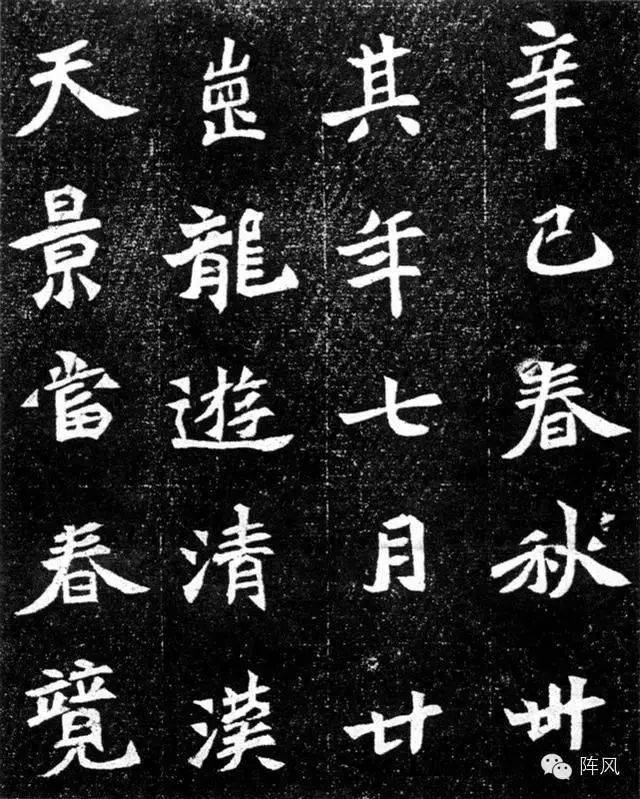 辛巳春秋卅
其年七月廿
龍遊清漢
天景當春竟
阵风